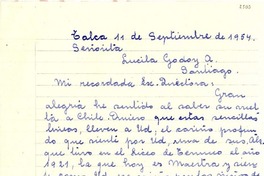 Talca 11 de Septiembre de 1954.
Señorita
Lucila Godoy A.
Santiago.
Mi recordada Ex. Directora:
Gran
alegría he sentido al saber su vuel
ta a Chile. Quiero que estas sencillas
líneas, lleven a Ud, el cariño profun
do que siente por Ud, una de sus Al
que tuvo en el Liceo de Temuco el año
1921, la que hoy es Maestra y